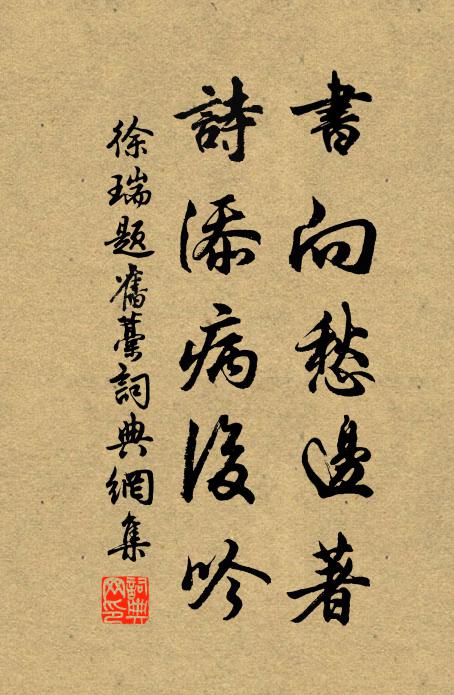 書向愁邊著
詩添病後吟
徐瑞題舊藁詞典網集
詞典網印